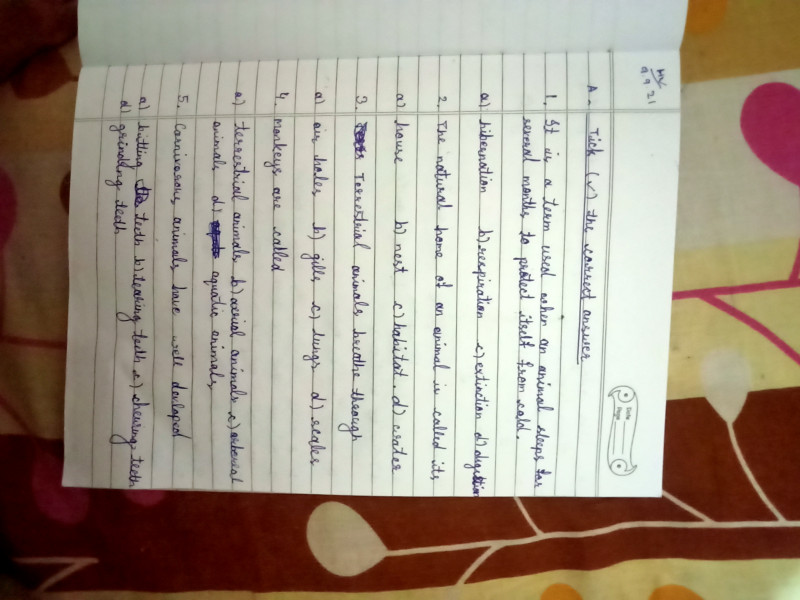 9.9.21
Date
Page
A. Tick (✓) the correct answer
1. It is a term used when an animal sleeps for
several months to protect itself from cold.
a) hibernation b) respiration c) extinction d) digestion
2. The natural home of an animal is called its
a) house b) nest c) habitat. d) crater
3. Terrestrial animals breathe through
a) air holes b) gills c) lungs d) scales
4. Monkeys are called
a) terrestrial animals b) aerial animals c) arboreal
animals d) aquatic animals
5. Carnivorous animals have well devloped
a) biting teeth b) tearing teeth c) chewing teeth
d) grinding teeth